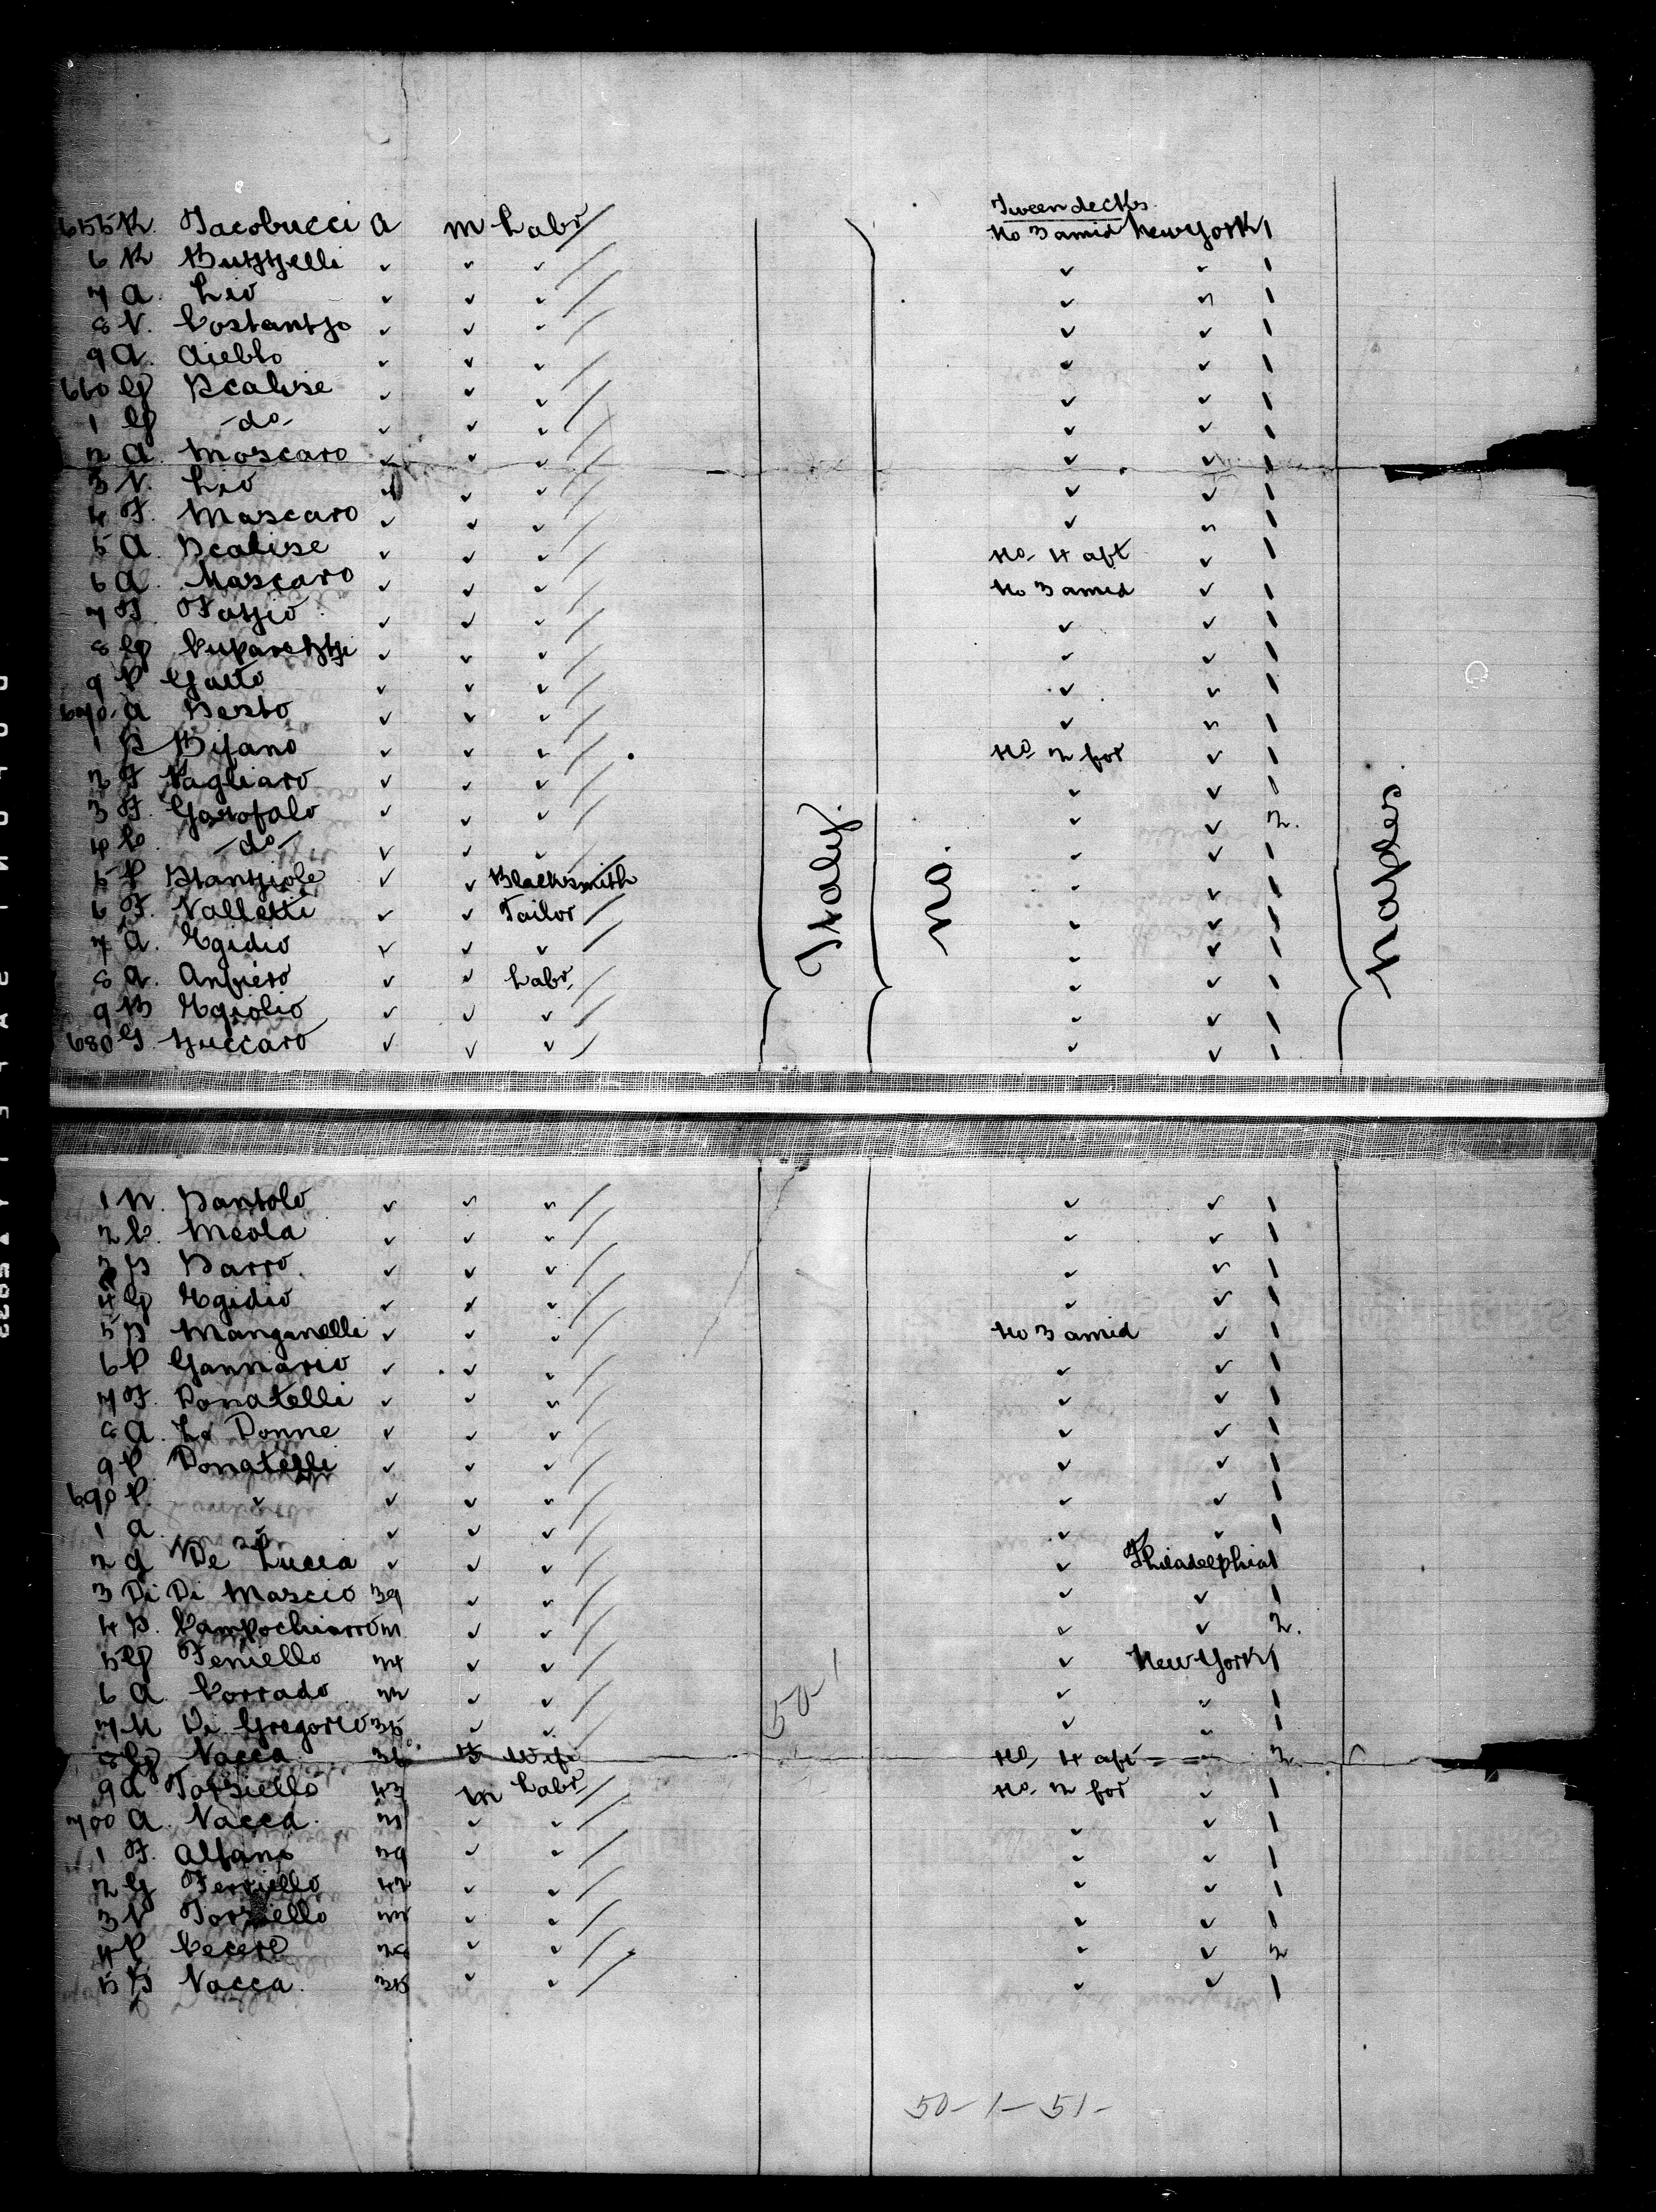 Tween decks
655 R. Iacobucci a m Labr No 3 amid New York 1
6 R Buzzelli ✓ ✓ ✓ ✓ ✓ 1
7 A. Lio ✓ ✓ ✓ ✓ ✓ 1
8 V. Costantzo ✓ ✓ ✓ ✓ ✓ 1
9 A. Aiello ✓ ✓ ✓ ✓ ✓ 1
660 G Scalise ✓ ✓ ✓ ✓ ✓ 1
1 G -do- ✓ ✓ ✓ ✓ ✓ 1
2 A. Moscaro ✓ ✓ ✓ ✓ ✓ 1
3 V. Lio ✓ ✓ ✓ ✓ ✓ 1
4 F. Mascaro ✓ ✓ ✓ ✓ ✓ 1
5 A Scalise ✓ ✓ ✓ No. 4 aft ✓ 1
6 A. Mascaro ✓ ✓ ✓ No 3 amid ✓ 1
7 F. Fazzio ✓ ✓ ✓ ✓ ✓ 1
8 G ✓ ✓ ✓ ✓ ✓ 1
9 P Gaito ✓ ✓ ✓ ✓ ✓ 1
670 A Sesto ✓ ✓ ✓ ✓ ✓ 1
1 S Bifano ✓ ✓ ✓ No. 2 for ✓ 1
2 F Pagliaro ✓ ✓ ✓ ✓ ✓ 1
3 F. Garofalo ✓ ✓ ✓ ✓ ✓ 2.
4 C. -do- ✓ ✓ ✓ ✓ ✓ 1
5 P Stanziole ✓ ✓ Blacksmith ✓ ✓ 1
6 F. Valletti ✓ ✓ Tailor ✓ ✓ 1
7 A. Egidio ✓ ✓ ✓ ✓ ✓ 1
8 A. ✓ ✓ Labr. ✓ ✓ 1
9 B Egidio ✓ ✓ ✓ ✓ ✓ 1
680 G. Zuccaro ✓ ✓ ✓ ✓ ✓ 1
Italy.
no.
Naples
1 N. Santolo ✓ ✓ ✓ ✓ ✓ 1
2 C. Meola ✓ ✓ ✓ ✓ ✓ 1
3 S Sarro ✓ ✓ ✓ ✓ ✓ 1
4 G Egidio ✓ ✓ ✓ ✓ ✓ 1
5 S Manganelli ✓ ✓ ✓ No 3 amid ✓ 1
6 P Gannario ✓ ✓ ✓ ✓ ✓ 1
7 F. Donatelli ✓ ✓ ✓ ✓ ✓ 1
8 A. Le Donne ✓ ✓ ✓ ✓ ✓ 1
9 P. Donatelli ✓ ✓ ✓ ✓ ✓ 1
690 P. ✓ ✓ ✓ ✓ ✓ ✓ 1
1 A ✓ ✓ ✓ ✓ ✓ ✓ 1
2 G De Lucca ✓ ✓ ✓ ✓ Philadelphia 1
3 Di Di Mascio 39 ✓ ✓ ✓ ✓ 1
4 S. Campochiarro ✓ ✓ ✓ ✓ 2.
5 G Feniello 24 ✓ ✓ ✓ New York 1
6 A Corrado 22 ✓ ✓ ✓ ✓ 1
7 N Di Gregorio 35 ✓ ✓ ✓ ✓ 1
8 G Vacca 36 F Wife No. 4 aft ✓ 2
9 A Torsiello 43 m Labr No. 2 for ✓ 1
700 A. Vacca 21 ✓ ✓ ✓ ✓ 1
1 F. Alfano 29 ✓ ✓ ✓ ✓ 1
2 G Ferriello 42 ✓ ✓ ✓ ✓ 1
3 V Torsiello 22 ✓ ✓ ✓ ✓ 1
4 P Cecere 28 ✓ ✓ ✓ ✓ 2
5 B Vacca 35 ✓ ✓ ✓ ✓ 1
50-1
50-1-51-